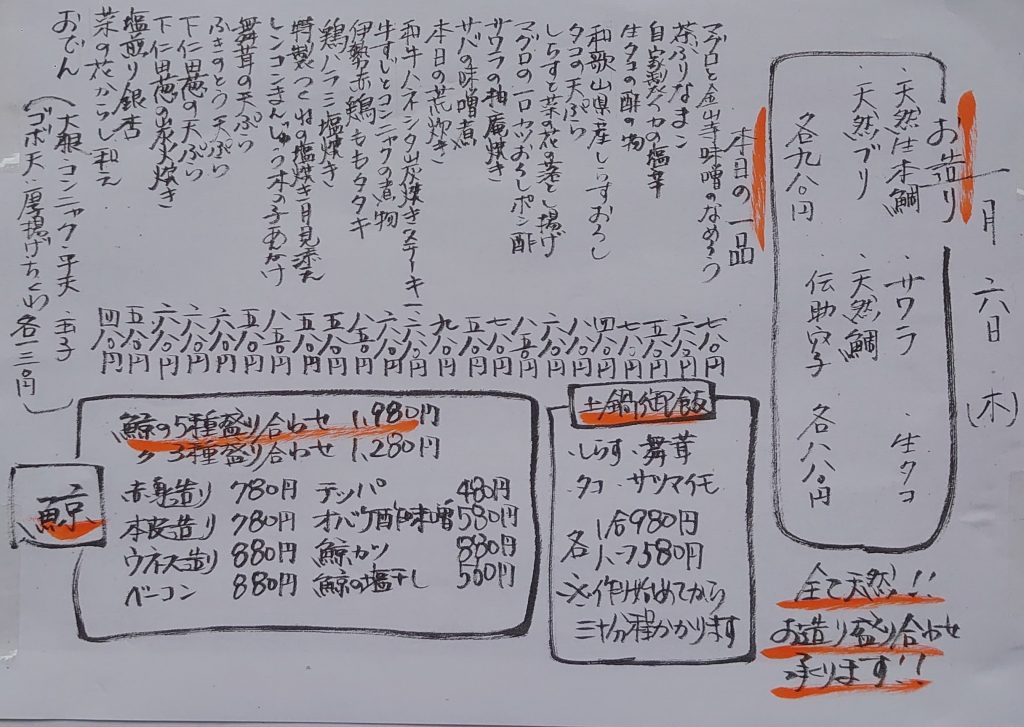 一月 六日 (木)
お造り
・天然生本鮪
・サワラ
・生タコ
・天然ブリ
・天然鯛
伝助穴子
各九八〇円
各八八〇円
全て天然!!
お造り盛り合わせ
承ります!!
本日の一品
マグロと金山寺味噌のなめろう 七八〇円
茶ぶりなまこ 六八〇円
自家製イカの塩辛 五八〇円
生タコの酢の物 七八〇円
和歌山県産しらすおろし 四八〇円
タコの天ぷら 八八〇円
しらすと菜の花の落とし揚げ 六八〇円
マグロの一口カツおろしポン酢 八五〇円
サワラの柚庵焼き 七八〇円
サバの味噌煮 五八〇円
本日の荒炊き 九八〇円
和牛ハネシタ炭焼きステーキ
牛すじとコンニャクの煮物 六八〇円
伊勢赤鶏ももタタキ 八五〇円
鶏ハラミ塩焼き 五八〇円
特製つくねの塩焼き月見添え 五五〇円
レンコンまんじゅう木の子あんかけ 八五〇円
舞茸の天ぷら 五八〇円
ふきのとう天ぷら 六八〇円
下仁田葱の天ぷら 六八〇円
下仁田葱の炭火焼き 六八〇円
塩煎り銀杏 五八〇円
菜の花からし和え 四八〇円
おでん
(大根・コンニャク・平天・玉子
ゴボ天・厚揚げ・ちくわ 各一三〇円)
土鍋御飯
・しらす ・舞茸
・タコ ・サツマイモ
各 1合980円
ハーフ580円
※作り始めてから
三十分程かかります
鯨
鯨の5種盛り合わせ 1,980円
〃 3種盛り合わせ 1,280円
赤身造り 780円 テッパ 480円
本皮造り 780円 オバケ酢味噌 580円
ウネス造り 880円 鯨カツ 880円
ベーコン 880円 鯨の塩干し 500円